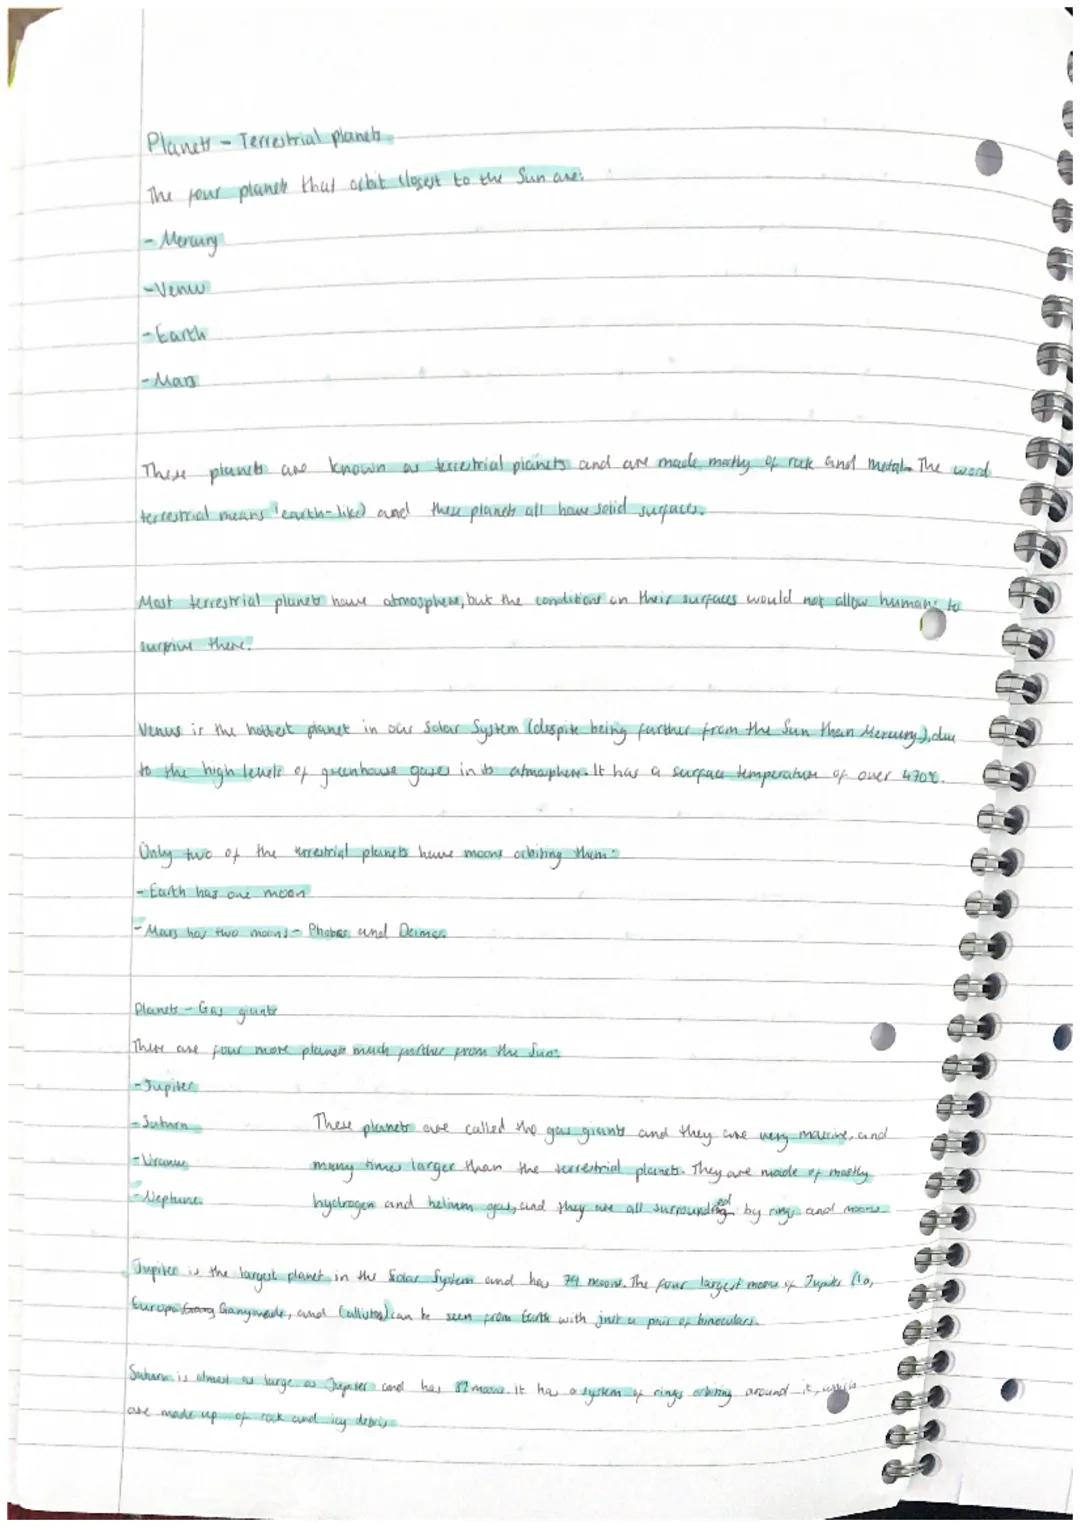 Planets - Terrestrial planets
The four planets that orbit closest to the Sun are:
- Mercury
- Venus
- Earth
- Mars
These planets are known as terrestrial planets and are made mostly of rock and metal. The word
terrestrial means 'earth-like' and these planets all have solid surfaces.
Most terrestrial planets have atmosphere, but the conditions on their surfaces would not allow humans to
survive there.
Venus is the hottest planet in our Solar System (despite being further from the Sun than Mercury), due
to the high levels of greenhouse gases in its atmosphere. It has a surface temperature of over 470°C.
Only two of the terrestrial planets have moons orbiting them:
- Earth has one moon
- Mars has two moons - Phobos and Deimos
Planets - Gas giants
There are four more planets much further from the Sun:
- Jupiter
- Saturn
- Uranus
- Neptune
These planets are called the gas giants and they are very massive, and
many times larger than the terrestrial planets. They are made of mostly
hydrogen and helium gas, and they are all surrounded by rings and moons
Jupiter is the largest planet in the Solar System and has 79 moons. The four largest moons of Jupiter (Io,
Europa Ganymede, and Callisto) can be seen from Earth with just a pair of binoculars.
Saturn is almost as large as Jupiter and has 82 moons. It has a system of rings orbiting around it, which
are made up of rock and icy debris